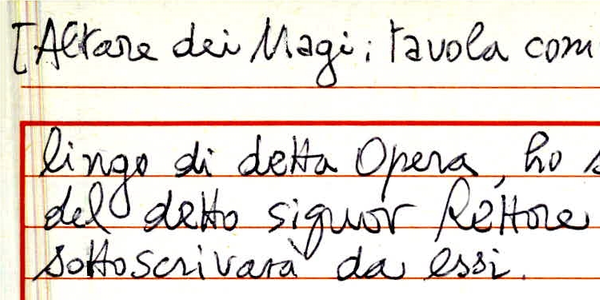 [Altare dei Magi; tavola com
lingo di detta Opera, ho s
del detto signor Rettore
sottoscrivarà da essi.